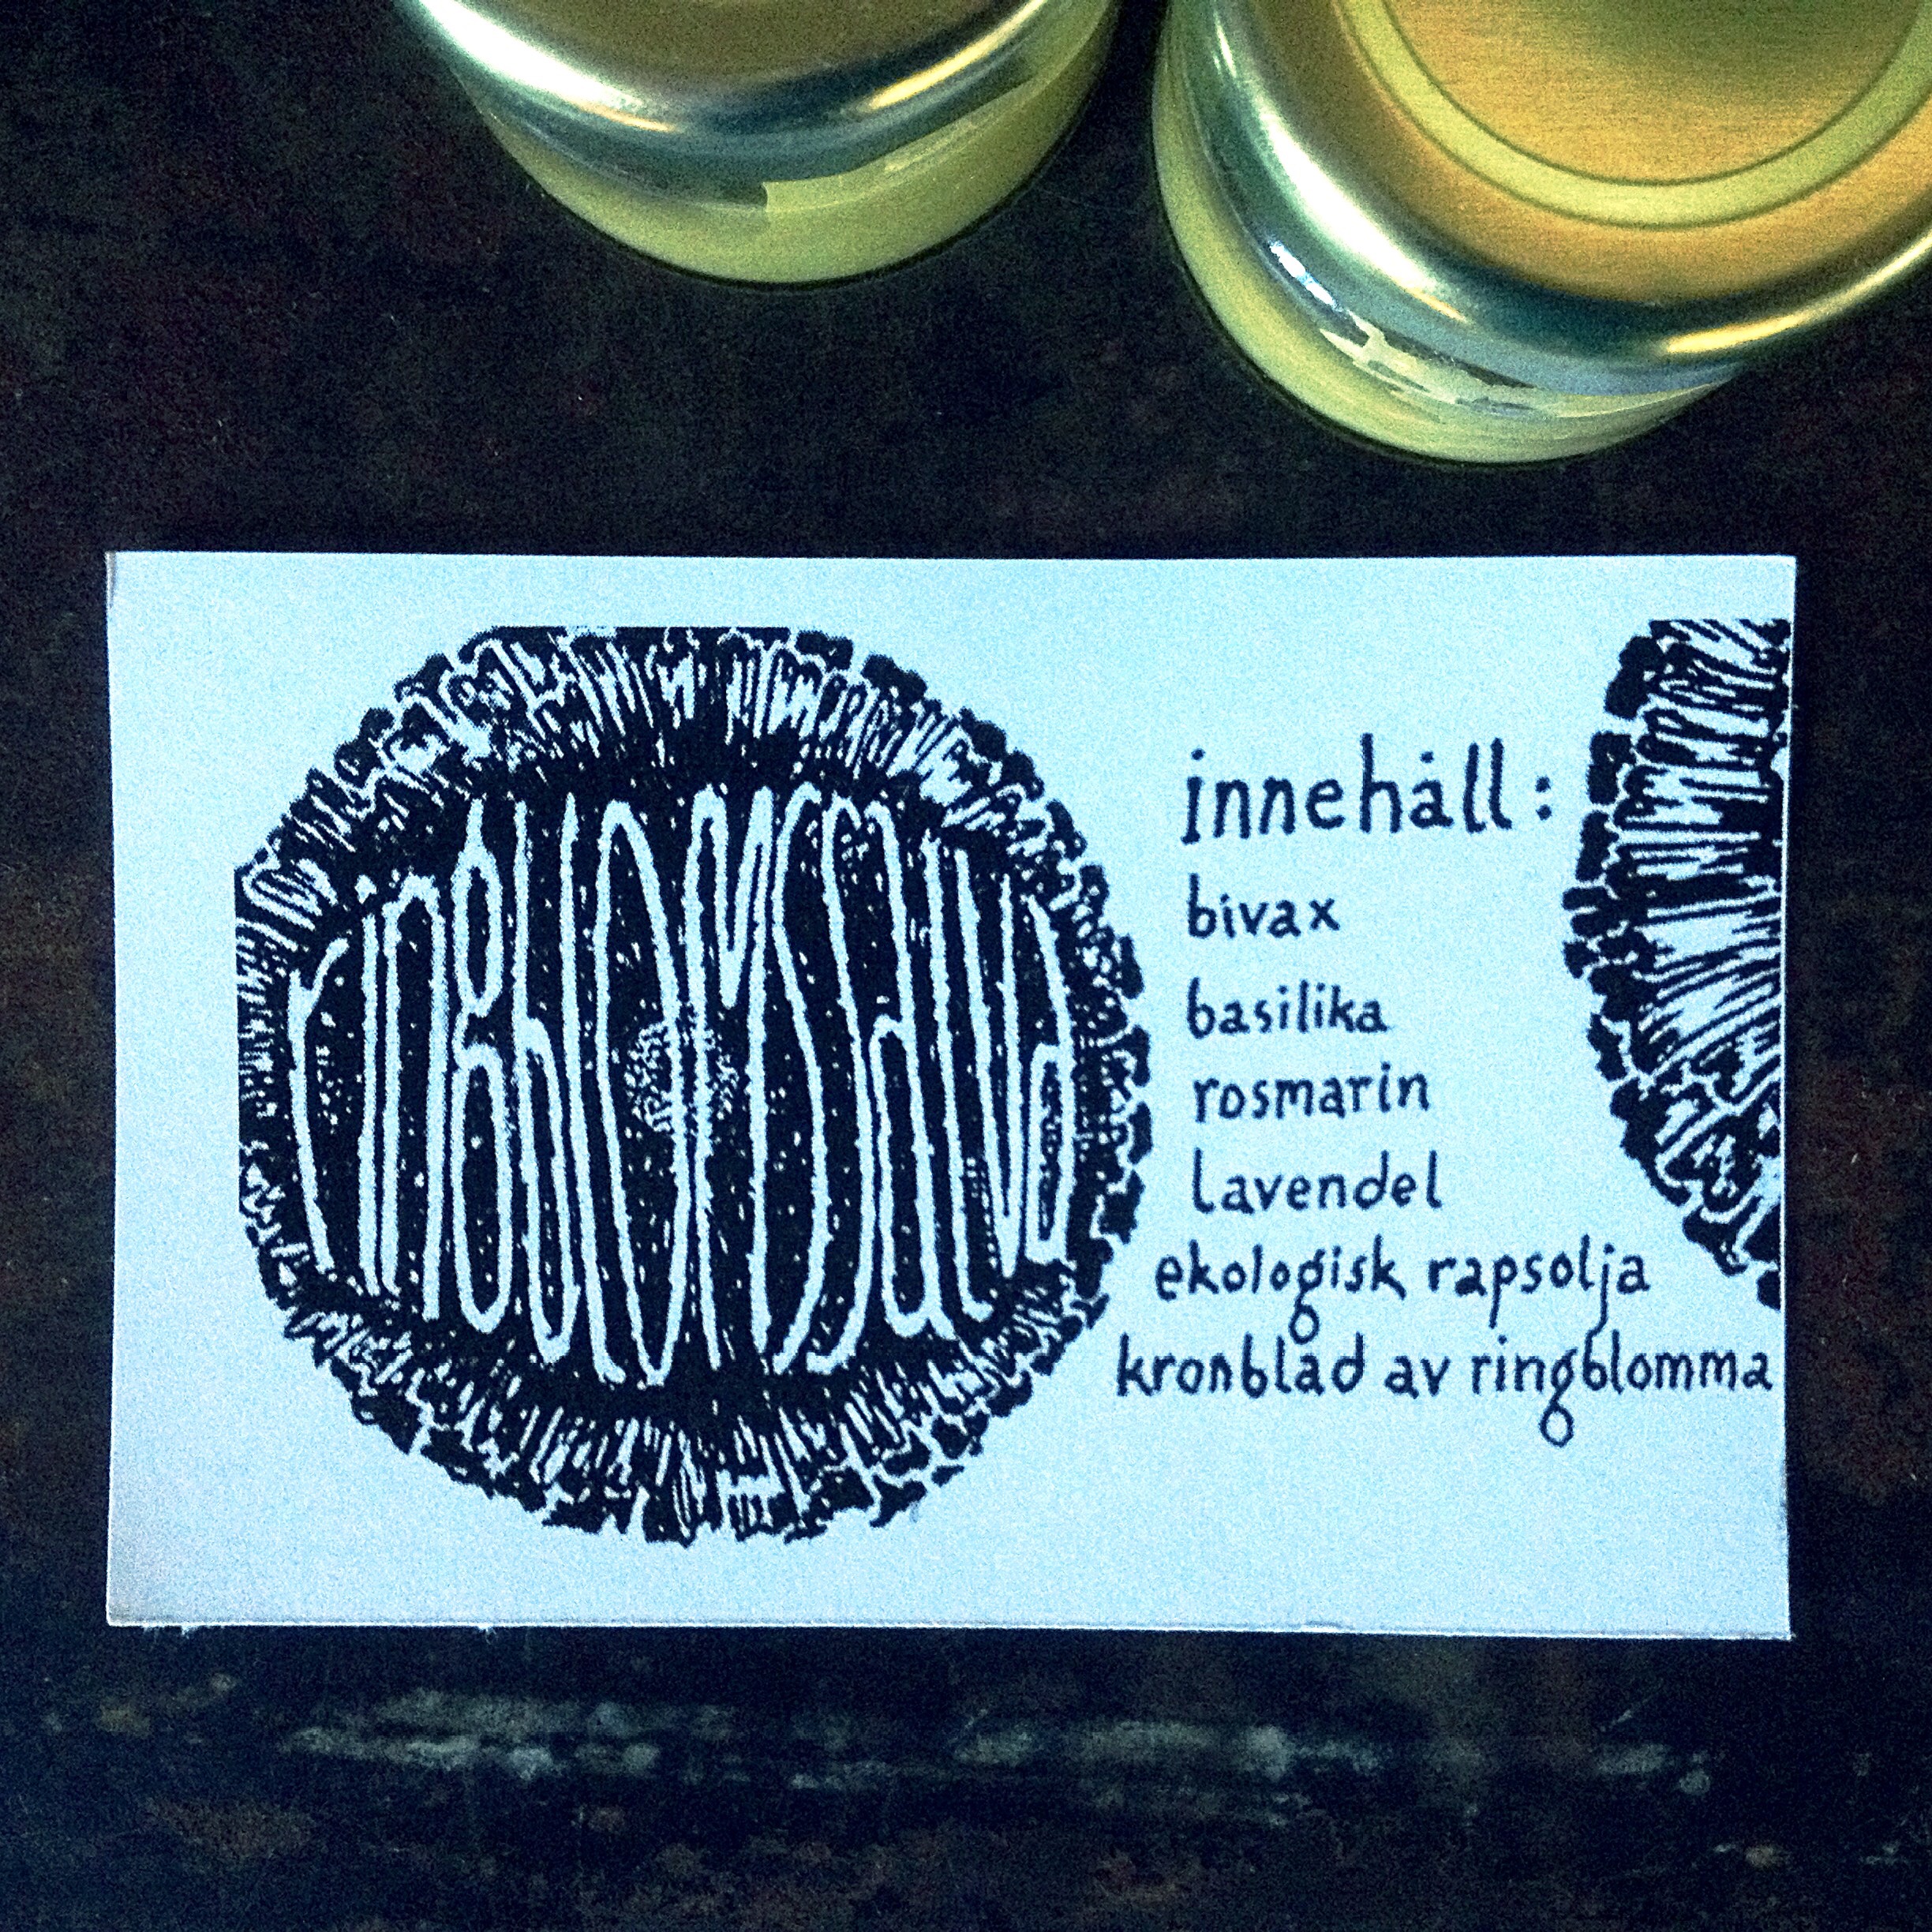 RINGBLOMSALVA
innehåll:
bivax
basilika
rosmarin
lavendel
ekologisk rapsolja
kronblad av ringblomma